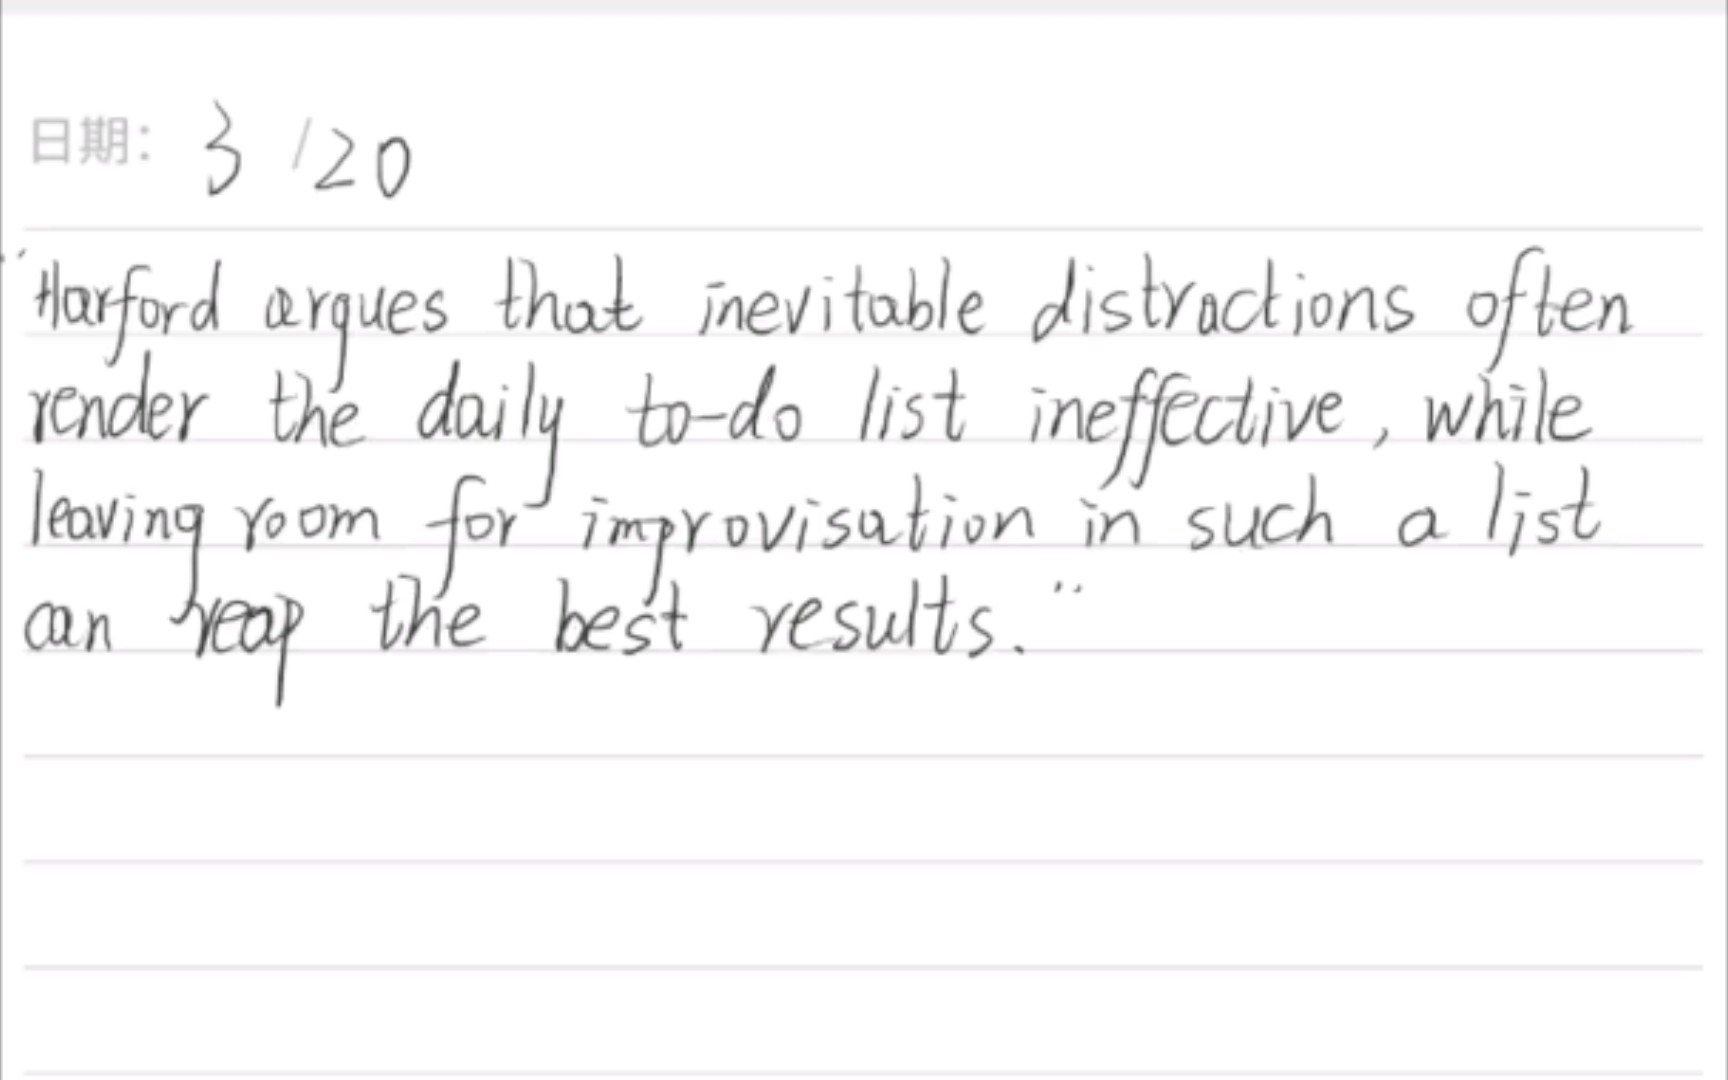 日期: 3/20
"Harford argues that inevitable distractions often
render the daily to-do list ineffective, while
leaving room for improvisation in such a list
can reap the best results."